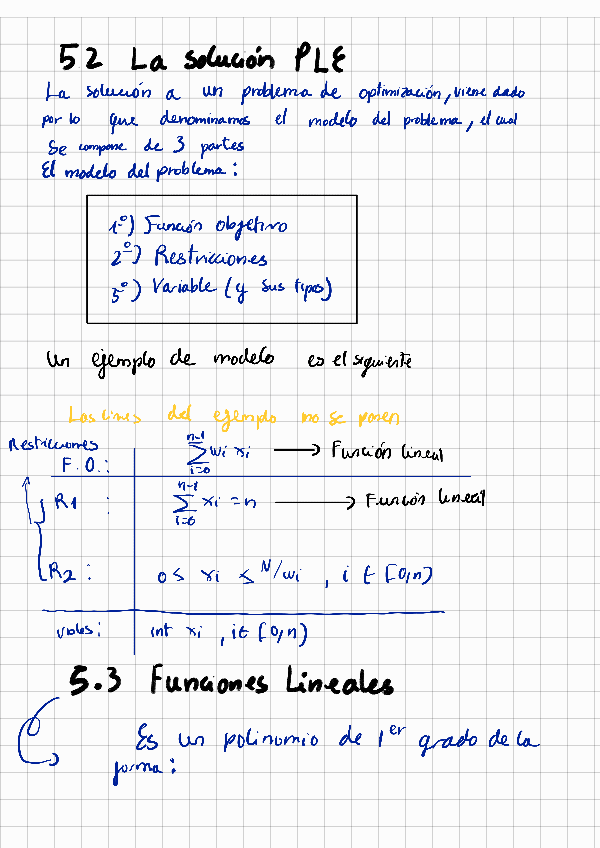 52 La solución PLE
La solución a un problema de optimización, viene dado
por lo que denominamos el modelo del problema, el cual
se compone de 3 partes
El modelo del problema:
1º) Función objetivo
2º) Restricciones
3º) Variable (y sus tipos)
Un ejemplo de modelo es el siguiente
Las lines del ejemplo no se ponen
Restricciones
F.O.: n-1 ∑ i=0 wi xi → Función lineal
R1 : n-1 ∑ i=0 xi = n → Función lineal
R2 : 0 ≤ xi ≤ N/wi , i ∈ [0,n)
vables: int xi , i ∈ [0,n)
5.3 Funciones Lineales
Es un polinomio de 1er grado de la
forma: